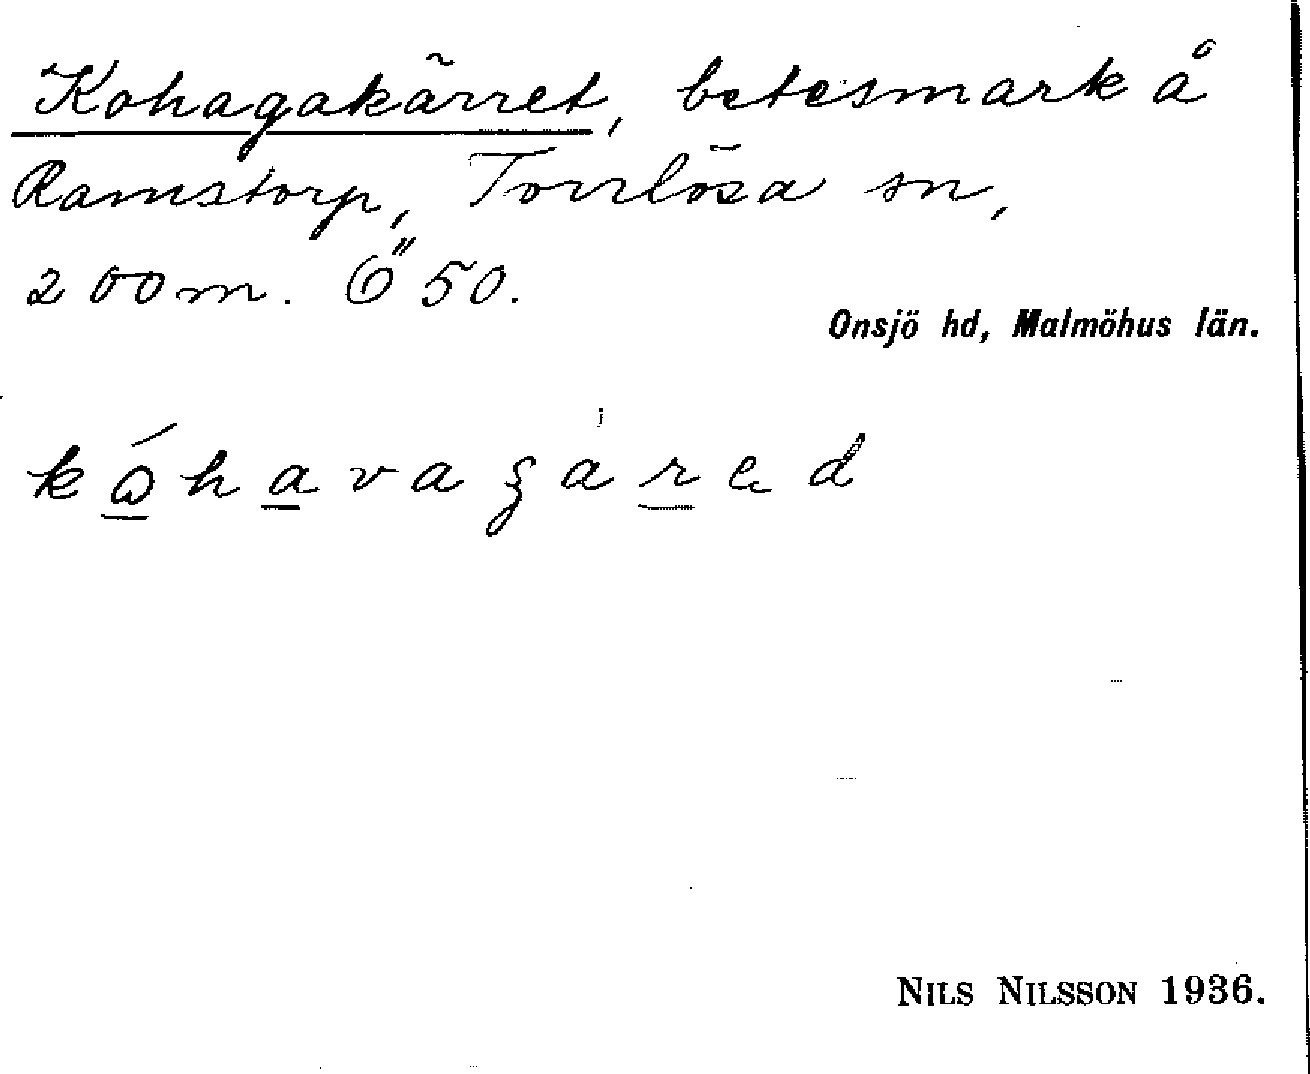 Kohagakärret, betesmark å
Ramstorp, Torrlösa sn,
200m. Ö" 50.
Onsjö hd, Malmöhus län.
NILS NILSSON 1936.